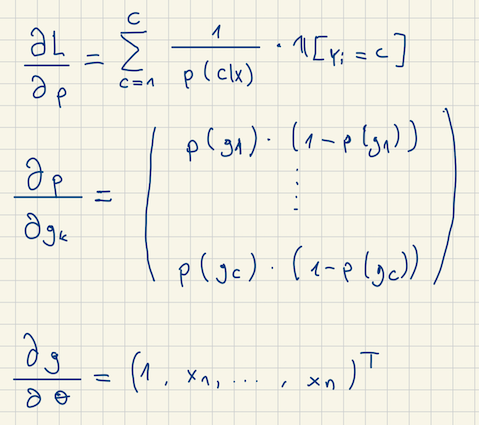 ∂L/∂p = Σ_{c=1}^{C} 1/p(c|x) · 𝟙[y_i = c]
∂p/∂g_k = ( p(g_1) · (1 - p(g_1))
⋮
p(g_C) · (1 - p(g_C)) )
∂g/∂θ = (1, x_1, ..., x_n)^T